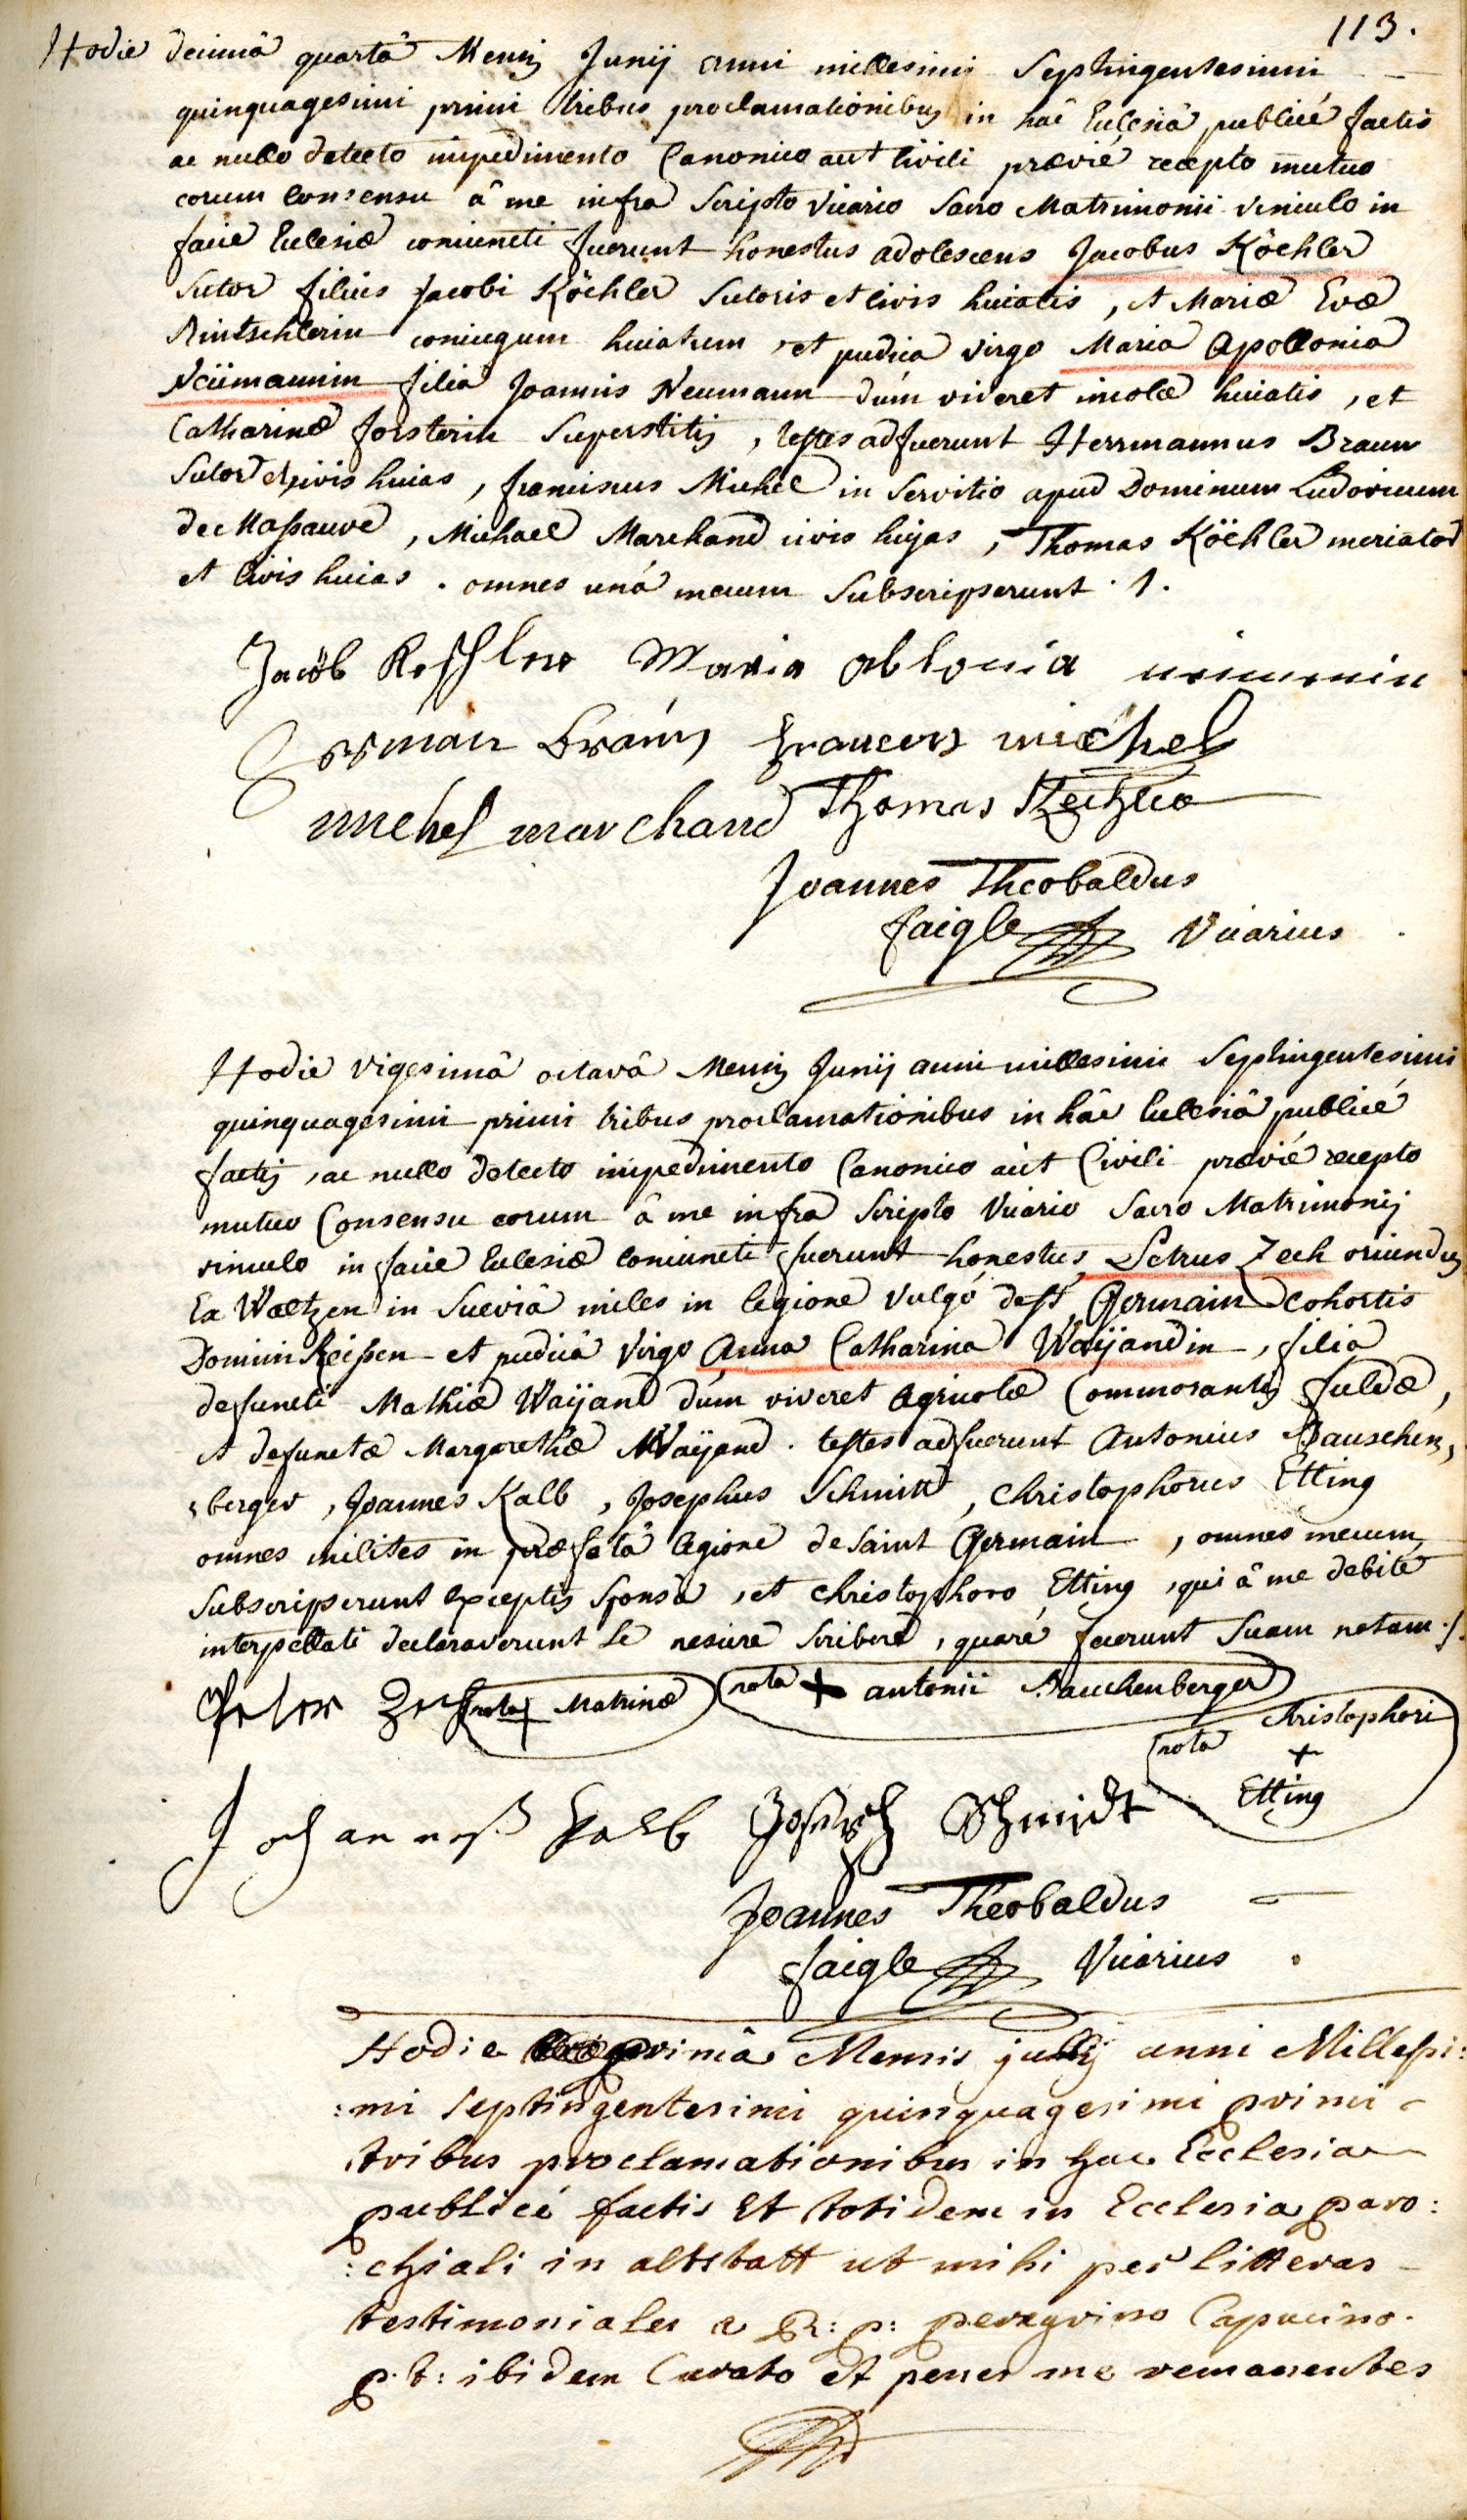 113.
Hodie decimâ quartâ Mensis Junij anni millesimi Septingentesimi
quinquagesimi primi tribus proclamationibus in hâc Ecclesiâ publicé factis
ac nullo detecto impedimento Canonico aut Civili prævié recepto mutuo
eorum consensu â me infra Scripto Vicario Sacro Matrimonii vinculo in
facie Ecclesiæ coniuncti fuerunt honestus adolescens Jacobus Köchler
Sutor filius Jacobi Köchler Sutoris et Civis huiatis, et Mariæ Evæ
Rintschlerin coniugum huiatum, et pudica virgo Maria Apollonia
Neümannin filia Joannis Neumann dúm viveret incolæ huiatis, et
Catharinæ forsterin Superstitis, testes adfuerunt Herrmannus Braun
Sutor et Civis huias, franciscus Michel in Servitio apud Dominum Ludovicum
de Massauve, Michael Marchand civis hujas, Thomas Köchler mercator
et Civis huias. omnes uná mecum Subscripserunt. /.
Jacob Kochler Maria ablonia neimenin
Herman Braun francois michel
michel marchand Thomas Kechler
Joannes Theobaldus
faigle Vicarius
Hodie vigesimâ octavâ Mensis Junij anni millesimi Septingentesimi
quinquagesimi primi tribus proclamationibus in hâc Ecclesiâ publicé
factis, ac nullo detecto impedimento Canonico aút Civili prævié recepto
mutuo Consensu eorum â me infra Scripto Vicario Sacro Matrimonij
vinculo in facie Ecclesiæ coniuncti fuerunt honestus Petrus Zech oriundus
Ex Waltzen in Sueviâ miles in legione vulgó de St Germain cohortis
Domini Reissen et pudica Virgo Anna Catharina Waijandin, filia
defuncti Mathiæ Waijand dúm viveret Agricolæ Commorantis fuldæ,
et defunctæ Margarethæ Waijand. testes adfuerunt Antonius Bauschen,
berger, Joannes Kalb, Josephus Schmitt, Christophorus Etting
omnes milites in præfatâ legione de Saint Germain, omnes mecum
Subscripserunt exceptis Sponsâ, et Christophoro Etting, qui â me debité
interpellati declaraverunt Se nescire Scribere, quaré fecerunt Suam notam. /.
Peter Zech nota + Matrinæ nota + antonii Bauchenberger
nota Christophori
+
Etting
Johannes Kalb Joseph Schmidt
Joannes Theobaldus
faigle Vicarius.
Hodie primâ Mensis julij anni Millesi:
:mi Septingentesimi quinquagesimi primi
tribus proclamationibus in hac Ecclesia
publicé factis Et totidem in Ecclesia paro:
:chiali in altstatt ut mihi per litteras
testimoniales a R: p: peregrino Capucino.
p. t: ibidem Curato et penes me remanentes